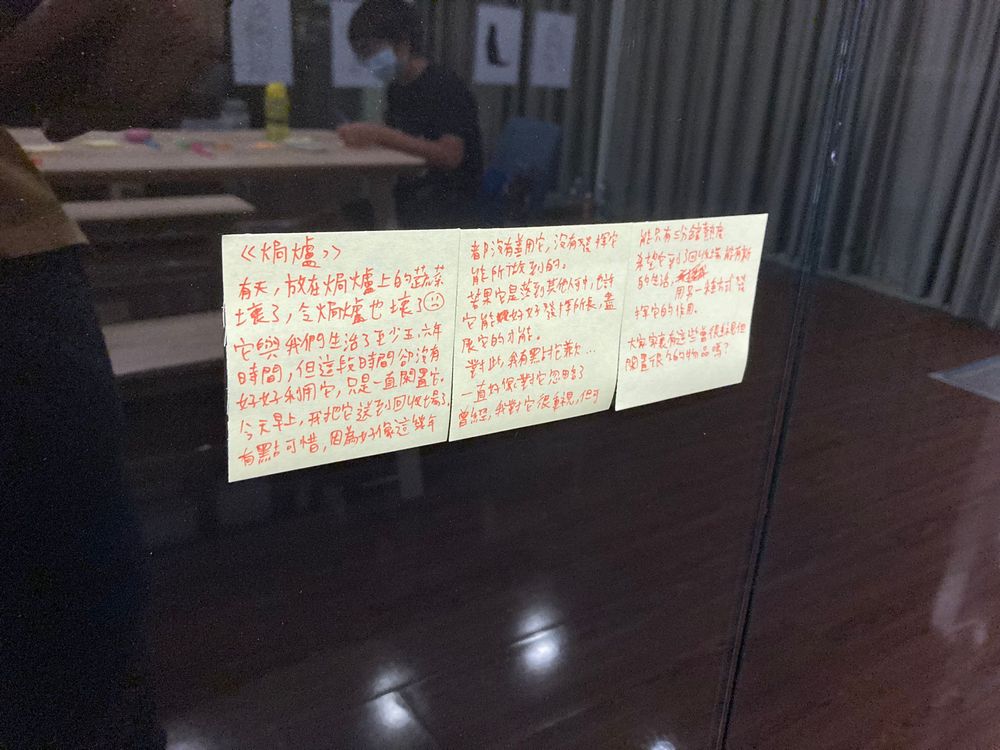 《焗爐》
有天，放在焗爐上的蔬菜
壞了，令焗爐也壞了☹
它與我們生活了至少五、六年
時間，但這段時間卻沒有
好好利用它，只是一直閑置它。
今天早上，我把它送到回收場了，
有點可惜，因為好像這幾年
都沒有善用它，沒有發揮它
能所做到的。
若果它是落到其他人手中，也許
它能好好發揮所長，盡
展它的才能。
對此，我有點抱歉...
一直好像對它忽略了
曾經，我對它很重視，但可
能只有三分鐘熱度
希望它到了回收場能有新
的生活，
用另一種方式發
揮它的作用。
大家家裏有這些曾很重視但
閑置很久的物品嗎？